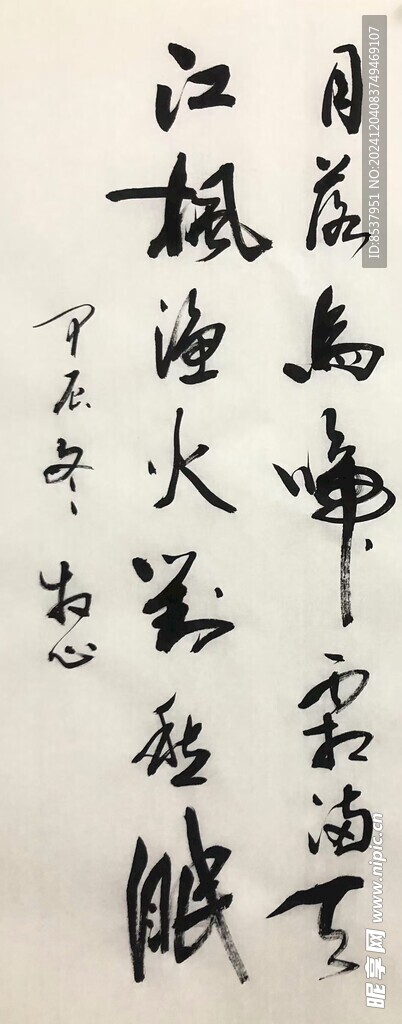 月落乌啼霜满天
江枫渔火對愁眠
甲辰冬 牧心
ID:8537951 NO:20241204083749469107
昵享网 www.nipic.cn